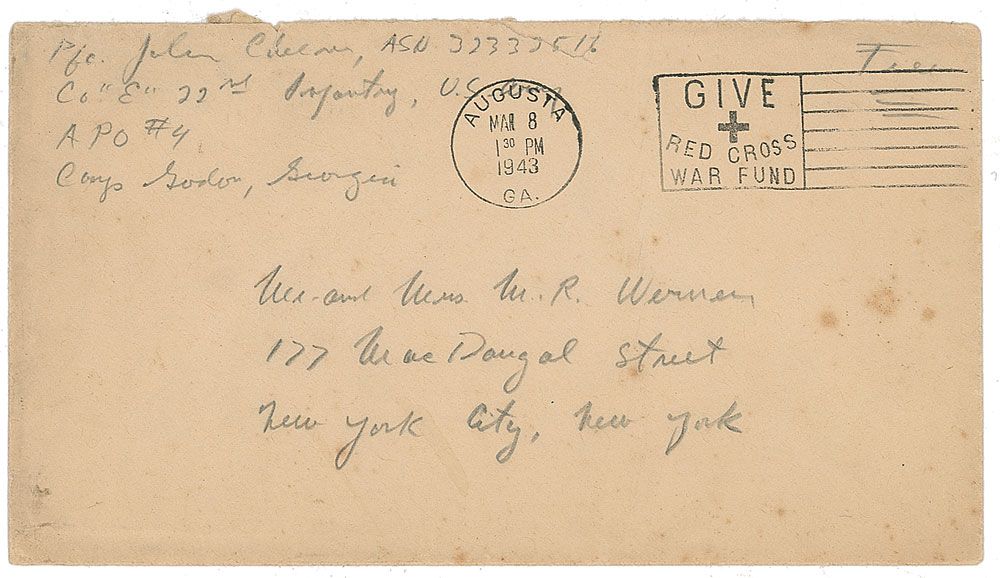 Pfc. John ASN 32333516
Co "E" 22nd Infantry, U.S.
APO #4
Camp Gordon, Georgia
Free
AUGUSTA
MAR 8
1 30 PM
1943
GA.
GIVE
RED CROSS
WAR FUND
Mr. and Mrs. M. R. Werner
177 MacDougal Street
New York City, New York